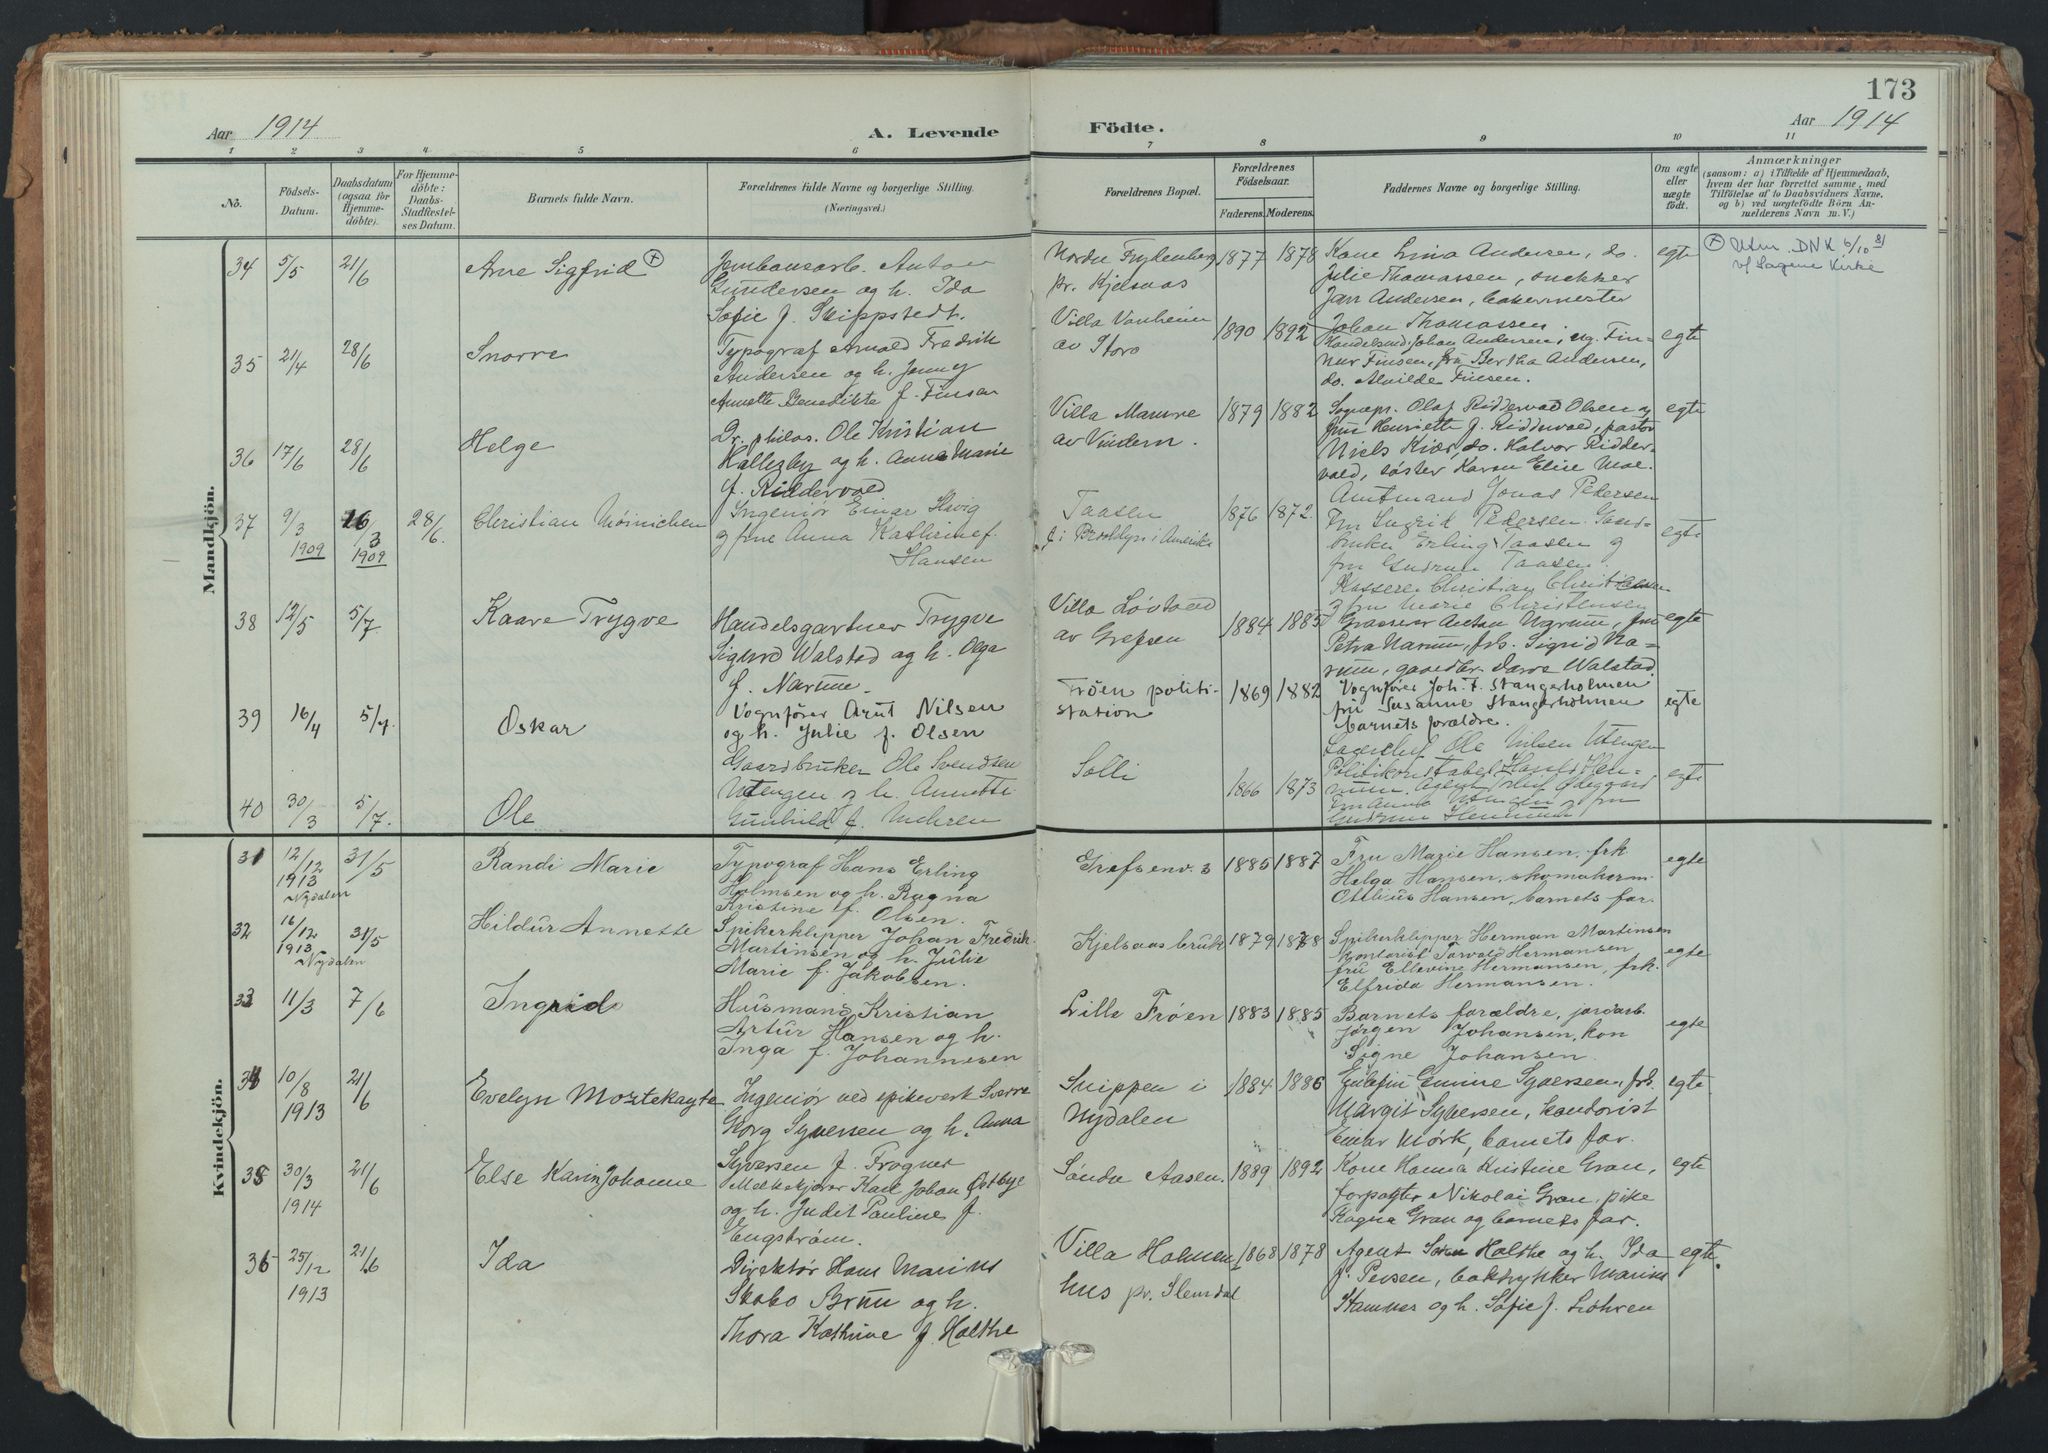 173
Aar 1914
A. Levende
Födte.
Aar 1914
1 2 3 4 5 6 7 8 9 10 11
No.
Födsels-Datum.
Daabsdatum (ogsaa for Hjemmedöbte).
For Hjemmedöbte: Daabs-Stadfæstelses Datum.
Barnets fulde Navn.
Forældrenes fulde Navne og borgerlige Stilling.
(Næringsvei.)
Forældrenes Bopæl.
Forældrenes Födselsaar.
Faderens. Moderens.
Faddernes Navne og borgerlige Stilling.
Om ægte eller uægte födt.
Anmærkninger
(saasom: a) i Tilfælde af Hjemmedaab, hvem der har forrettet samme, med Tilföielse af to Daabsvidners Navne, og b) ved uægtefödte Börn Anmelderens Navn m. V.)
Mandkjön.
34 5/5 21/6 Arne Sigfrid
Anton
Gundersen og h. Ida
Sofie f. Skippstedt.
Nordre Frydenberg
pr. Kjelsaas
1877 1878
Kone Lina Andersen, do.
Julie Thomassen, snekker
Jan Andersen, bakermester
Johan Thomassen.
egte
Utm. DNK 6/10 31
v/ Sagene Kirke
35 21/4 28/6 Snorre
Typograf Arnold Fredrik
Andersen og h. Jenny
Annette Benedikte f. Finsen
Villa Vanheim
av Storo
1890 1892
Johan Andersen, ug. Fin-
nur Finsen, fru Bertha Andersen,
do. Alvilde Finsen.
egte
36 17/6 28/6 Helge
Dr. philos. Ole Kristian
Hallesby og h. Anna Marie
f. Riddervold
Villa Mamre
av Vindern.
1879 1882
Sognepr. Olaf Riddervold Olsen og
fru Henriette f. Riddervold, pastor
Niels Kiær, do. Halvor Ridder-
vold, søster Karen Elise Moe.
egte
37 9/3 1909 26/3 1909 28/6. Christian Møinichen
Ingeniør Einar Havig
og frue Anna Kathrine f.
Hansen
Taasen
f. i Brooklyn i Amerika
1876 1872.
Amtmand Jonas Pedersen
Fru Ingrid Pedersen. Gaard-
bruker Erling Taasen og
fru Gudrun Taasen.
Kasserer Christian Christensen
og fru Marie Christensen
egte
38 12/5 5/7 Kaare Trygve
Handelsgartner Trygve
Sigurd Walstad og h. Olga
f. Narum.
Villa Løvstad
av Grefsen
1884 1885
Grosserer Anton Narum, fru
Petra Narum, frk. Sigrid Na-
rum, gaardbr. Lars Walstad.
egte
39 16/4 5/7. Oskar
Vognfører Arut Nilsen
og h. Julie f. Olsen
Frøen politi-
station
1869 1882
Vognfører Joh. F. Stangerholmen
fru Susanne Stangerholmen
barnets forældre.
egte
40 30/3 5/7. Ole
Gaardbruker Ole Svendsen
Utengen og h. Annette
Gunhild f.
Solli
1866 1873
Ole Nilsen Utengen
Politikonstabel Hans Hen-
Agent Oluf Ødegaard
Fru Anna Utengen og fru
Gudrun
egte
Kvindekjön.
31 12/12 1913 Nydalen 31/5 Randi Marie
Typograf Hans Erling
Holmsen og h. Ragna
Kristine f. Olsen.
Grefsenv. 3
1885 1887
Fru Marie Hansen, frk.
Helga Hansen, skomakerm.
Ottilius Hansen, barnets far.
egte
32 16/12 1913 Nydalen 31/5 Hildur Annette
Spikerklipper Johan Fredrik
Martinsen og h. Julie
Marie f. Jakobsen.
Kjelsaas bruk
1879 1878
Spikerklipper Herman Martinsen
Kontorist Torvald Hermansen
fru Ellevine Hermansen, frk.
Elfrida Hermansen.
egte
33 11/3 7/6 Ingrid
Husmand Kristian
Artur Hansen og h.
Inga f. Johannesen
Lille Frøen
1883 1885
Barnets forældre, jordarb.
Jørgen Johansen, kon
Signe Johansen.
egte
34 10/8 1913 21/6 Evelyn
Ingeniør ved spikerverk Sverre
Georg Syversen og h. Anna
Syversen f. Frogner
Snippen i
Nydalen
1884 1886
Syversen, frk.
Margit Syversen, kontorist
Einar Mørk, barnets far.
egte
35 30/3 1914 21/6 Else Karin Johanne
Melkekjører Karl Johan Østbye
og h. Judet Pauline f.
Engstrøm.
Søndre Aasen.
1889 1892
Kone Hanna Kristine Gran,
forpagter Nikolai Gran, pike
Ragna Gran og barnets far.
egte
36 25/12 1913 21/6 Ida
Direktør Hans Marius
Skobo Bruu og h.
Thora Kathrine f. Holthe
Villa Holmen-
hus pr. Slemdal
1868 1878
Agent Søren Holthe og h. Ida
f. Persen, boktrykker Marius
Stamnes og h. Sofie f. Løhren
egte.